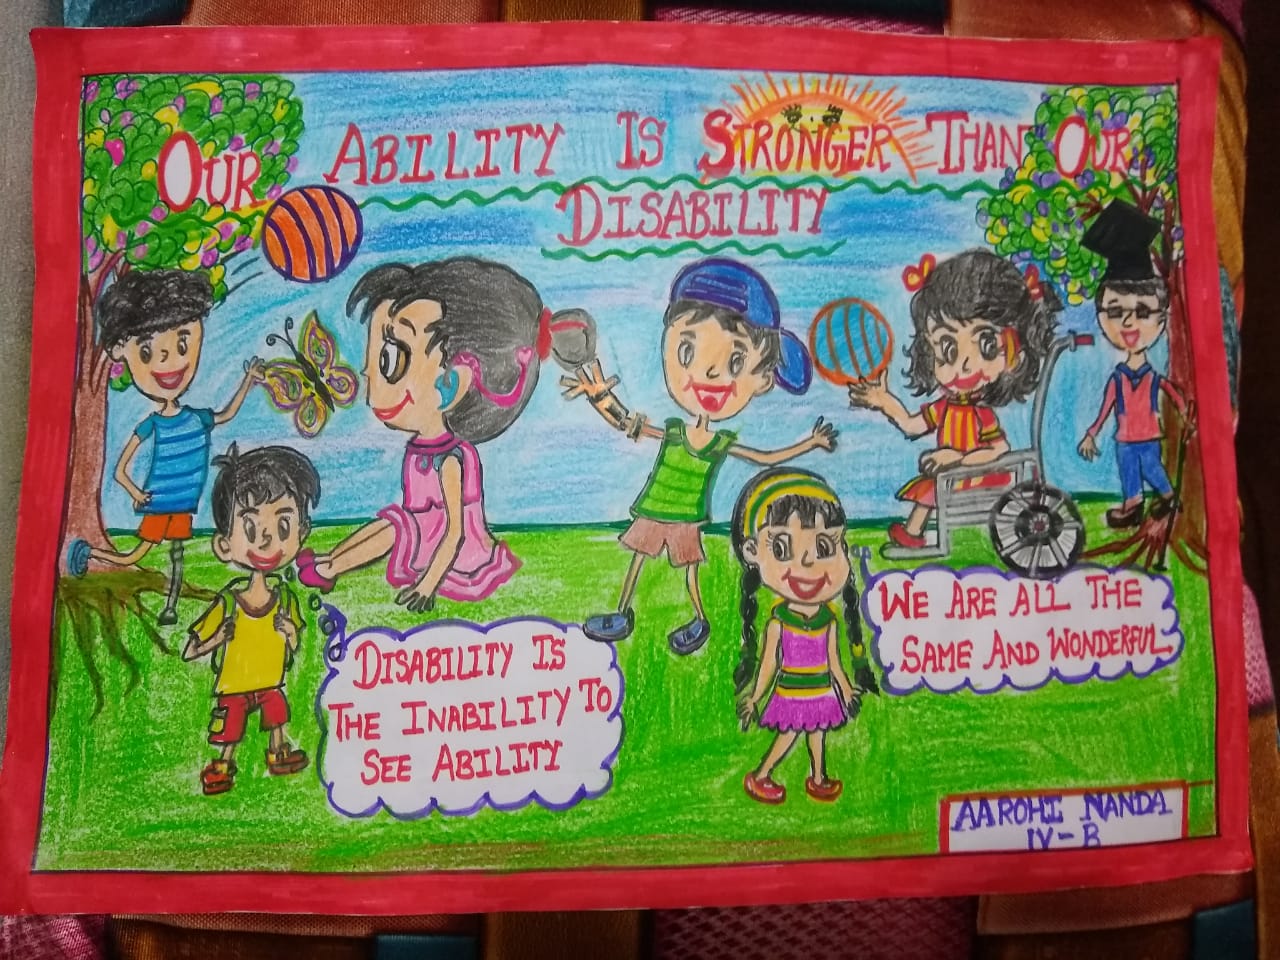 OUR ABILITY IS STRONGER THAN OUR
DISABILITY
DISABILITY IS
THE INABILITY TO
SEE ABILITY
WE ARE ALL THE
SAME AND WONDERFUL
AAROHI NANDA
IV-B